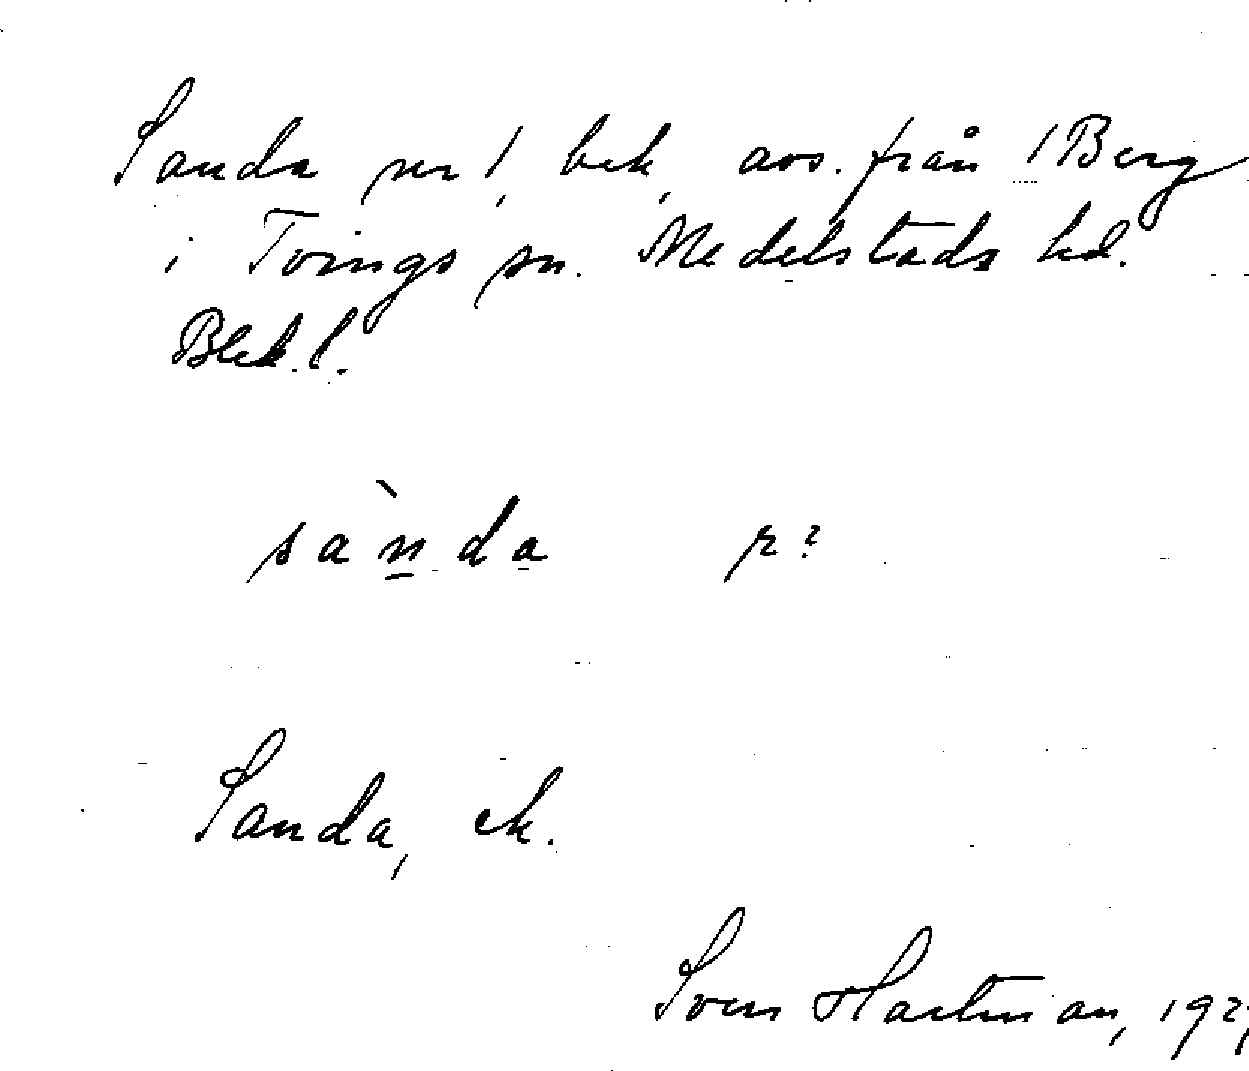 Sanda nr 1, bek, avs. från 1 Berg
i Tvings sn. Medelstads hd.
Blek. l.
sànda r?
Sanda, ek.
Sven Hartman, 192